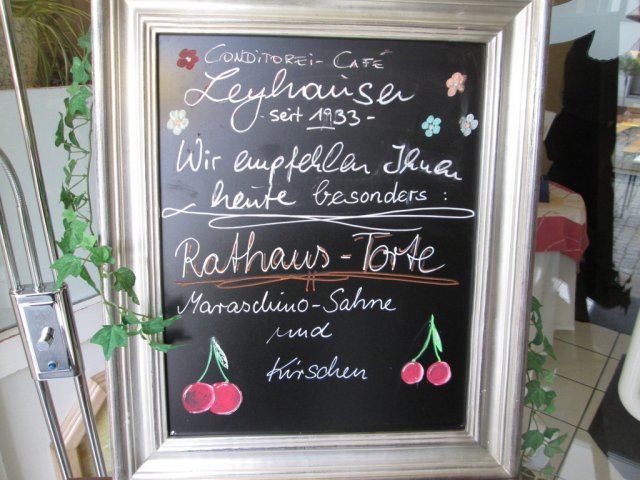 Conditorei-Café
Leyhauser
- seit 1933 -
Wir empfehlen Ihnen
heute besonders:
Rathaus-Torte
Maraschino-Sahne
und
Kirschen